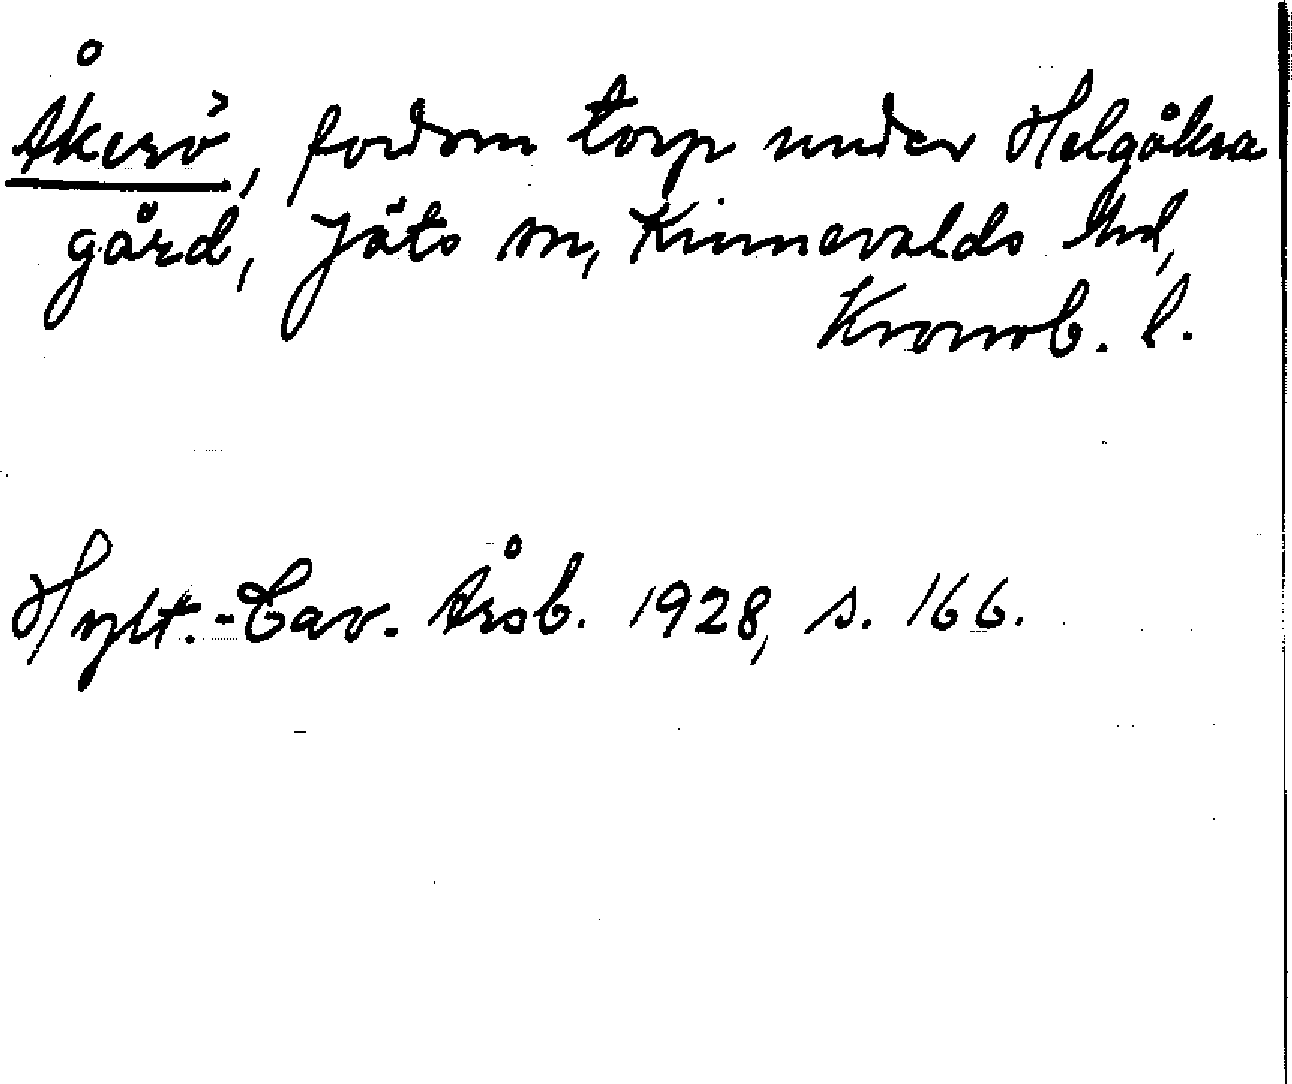 Åkerö, fordom torp under Helgåkra
gård, Jäts sn, Kinnevalds hd,
Kronob. l.
Hylt.-Cav. Årsb. 1928, s. 166.